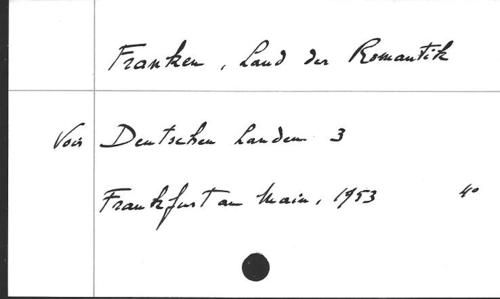 Franken, Land der Romantik
Voir Deutschen Landen 3
Frankfurt am Main, 1953 4°